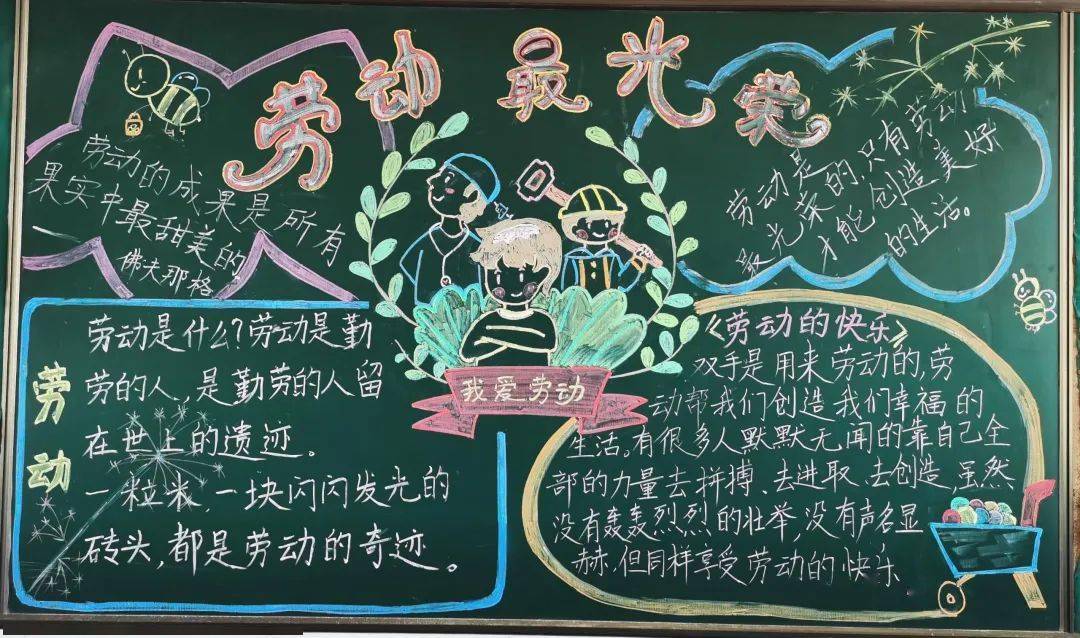 劳动最光荣
劳动的成果是所有
果实中最甜美的
佛夫那格
劳动是
最光荣的,只有劳动
才能创造美好
的生活。
我爱劳动
劳动
劳动是什么?劳动是勤
劳的人,是勤劳的人留
在世上的遗迹。
一粒米,一块闪闪发光的
砖头,都是劳动的奇迹。
《劳动的快乐》
双手是用来劳动的,劳
动帮我们创造我们幸福的
生活。有很多人默默无闻的靠自己全
部的力量去拼搏、去进取、去创造,虽然
没有轰轰烈烈的壮举,没有声名显
赫,但同样享受劳动的快乐